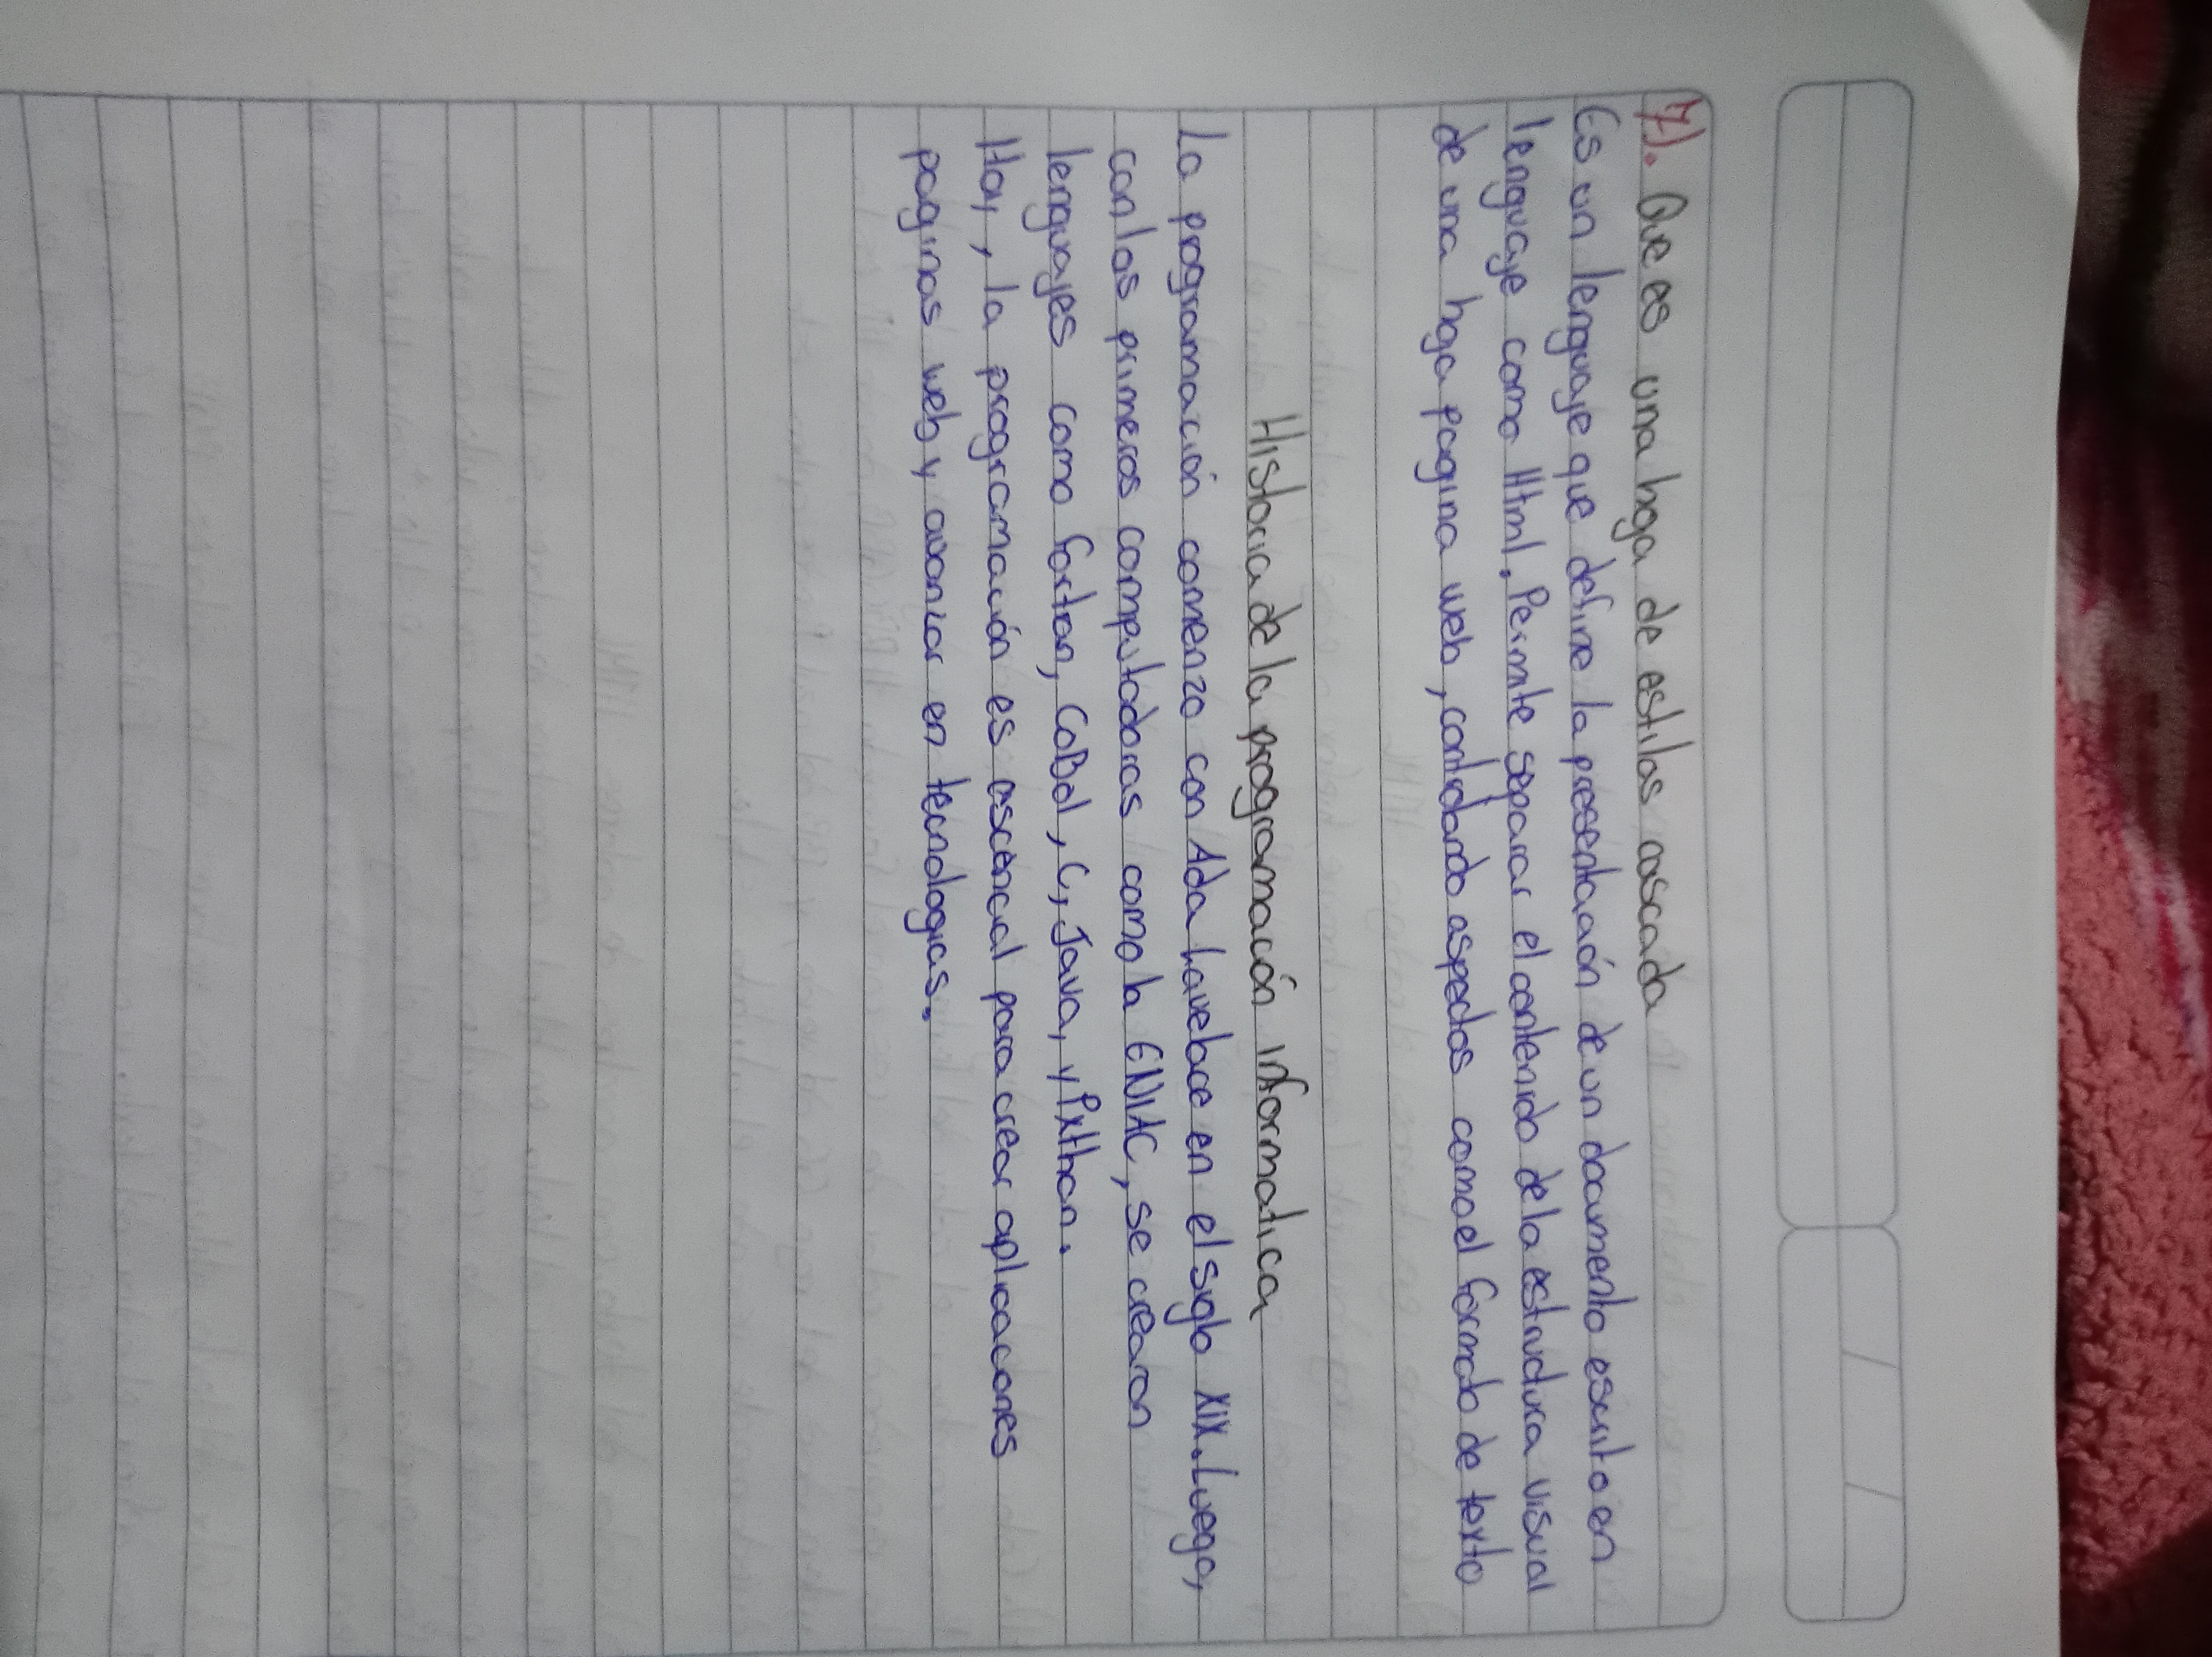 7). Que es una hoja de estilos cascada
Es un lenguaje que define la presentación de un documento escrito en
lenguaje como Html. Permite separar el contenido de la estructura visual
de una hoja pagina web, contolando aspectos como el formato de texto
Historia de la programación informatica
La programación comenzo con Ada Lavelace en el siglo XIX. Luego,
con las primeras computadoras como la ENIAC, se crearon
lenguajes como fortran, CoBol, C, Java, y Python.
Hoy, la programación es escencial para crear aplicaciones
paginas web y avanzar en tecnologias.